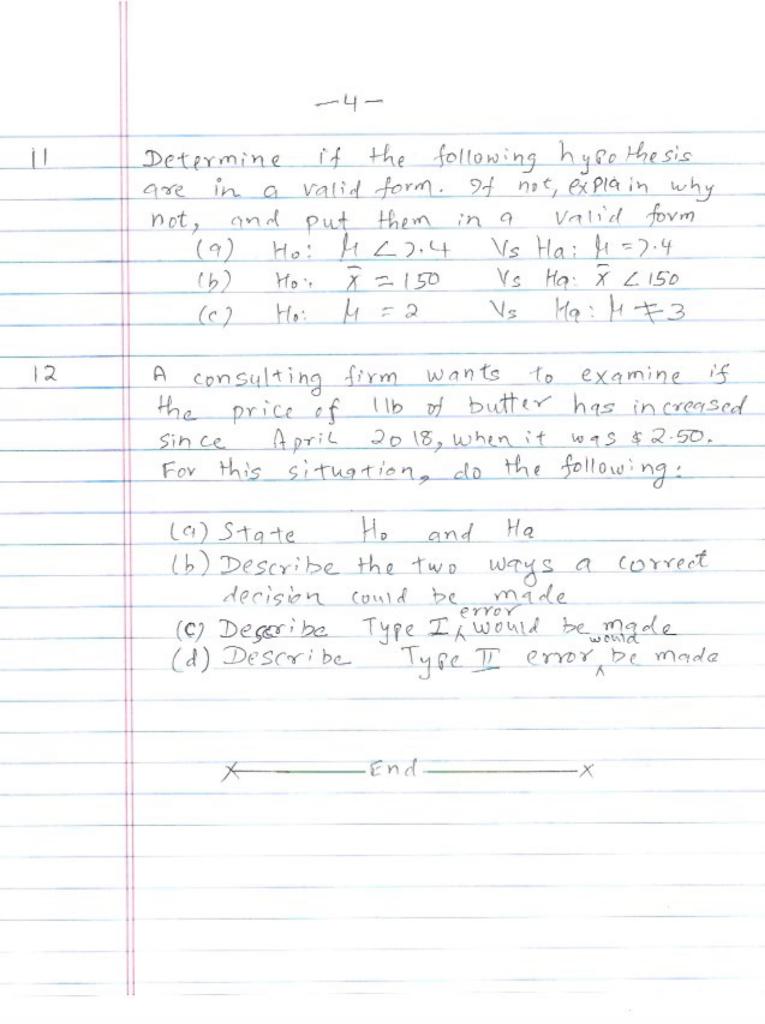 -4-
11 Determine if the following hypothesis
are in a valid form. If not, explain why
not, and put them in a valid form
(a) Ho: μ < 7.4 Vs Ha: μ = 7.4
(b) Ho: x̄ = 150 Vs Ha: x̄ < 150
(c) Ho: μ = 2 Vs Ha: μ ≠ 3
12 A consulting firm wants to examine if
the price of 1lb of butter has increased
since April 2018, when it was $2.50.
For this situation, do the following:
(a) State Ho and Ha
(b) Describe the two ways a correct
decision could be made
(c) Describe Type I error would be made
(d) Describe Type II error would be made
x End x